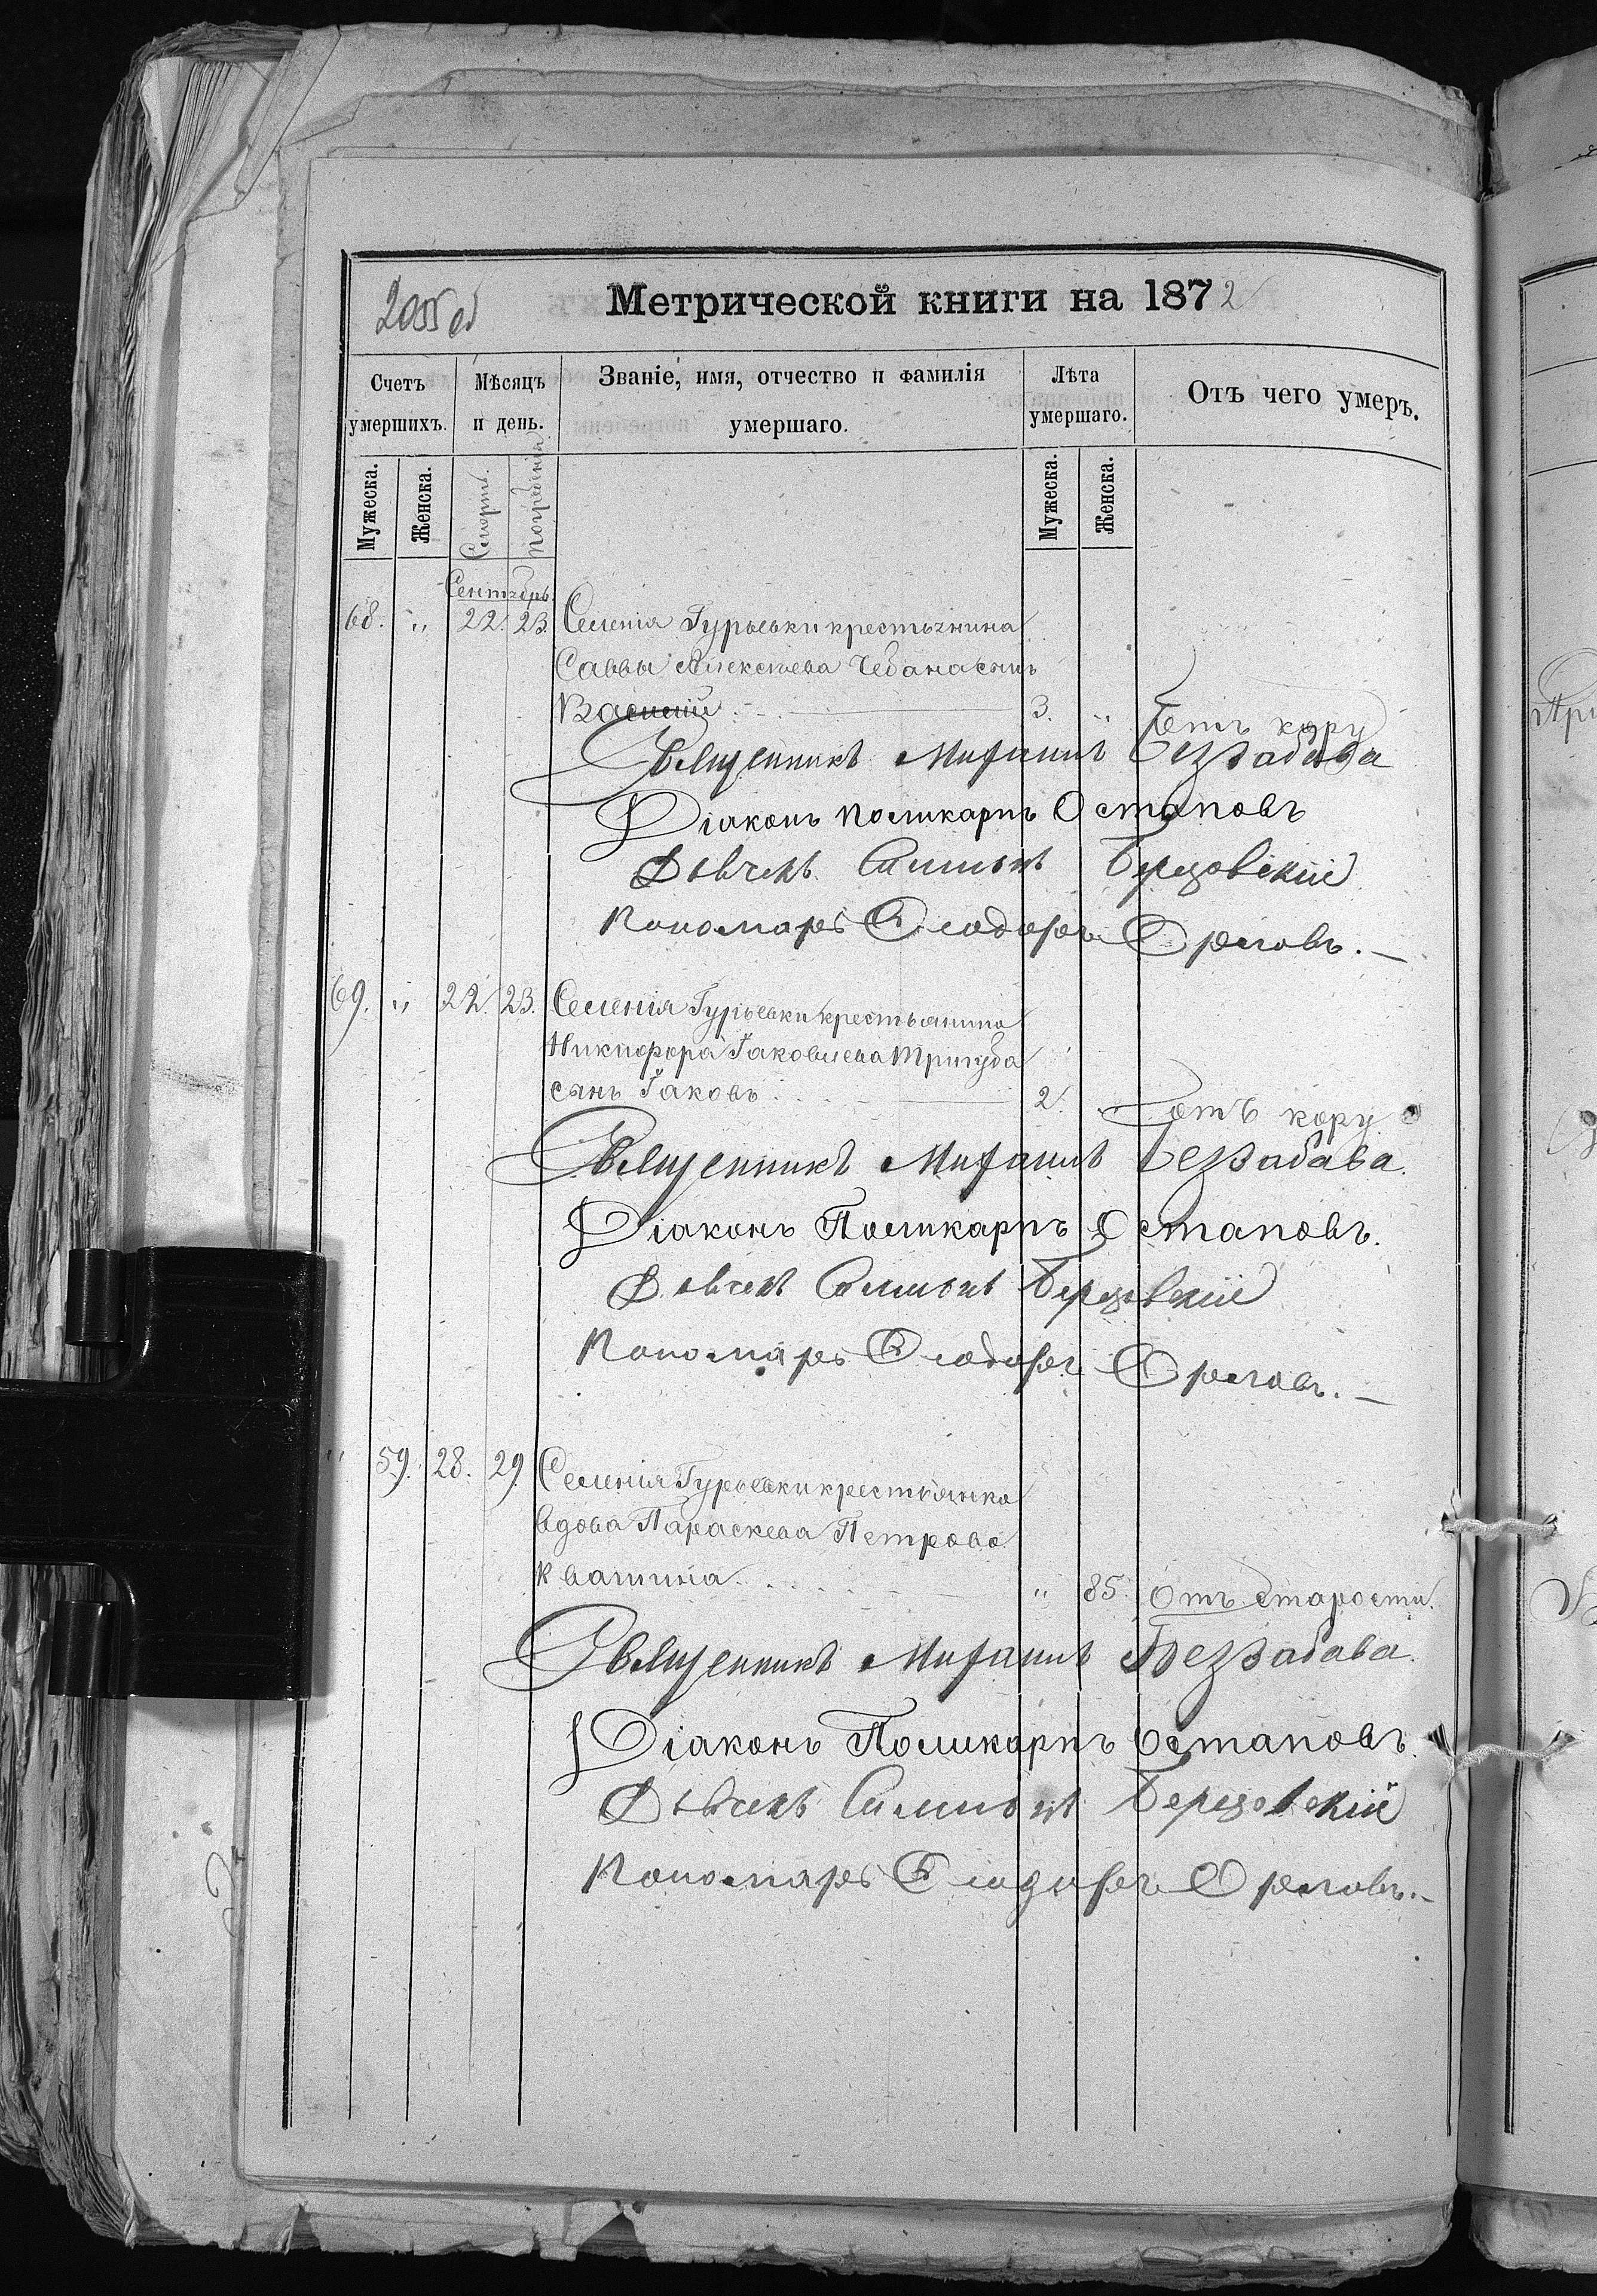 Метрической книги на 1872
Счетъ умершихъ.
Мѣсяцъ и день.
Званіе, имя, отчество и фамилія умершаго.
Лѣта умершаго.
Отъ чего умеръ.
Мужеска.
Женска.
Смерти.
Погребенія
Мужеска.
Женска.
Сентябрь.
68. „ 22. 23. Селенія Гурьевки крестьянина
Саввы Алексеева Чебана сынъ
Василій 3. „ отъ кору
Священникъ Михаилъ Беззабава
Діаконъ Поликарпъ Остаповъ
Дьячекъ Симеонъ Березовскій
Пономарь Ѳеодоръ Орловъ.
69. „ 22. 23. Селенія Гурьевки крестьянина
Никифора Іаковлева Тригуба
сынъ Іаковъ 2. отъ кору
Священникъ Михаилъ Беззабава.
Діаконъ Поликарпъ Остаповъ.
Дьячекъ Симеонъ Березовскій
Пономарь Ѳеодоръ Орловъ.
„ 59. 28. 29. Селенія Гурьевки крестьянка
вдова Параскева Петрова
Квашина „ 85. отъ старости.
Священникъ Михаилъ Беззабава.
Діаконъ Поликарпъ Остаповъ.
Дьячекъ Симеонъ Березовскій
Пономарь Ѳеодоръ Орловъ.